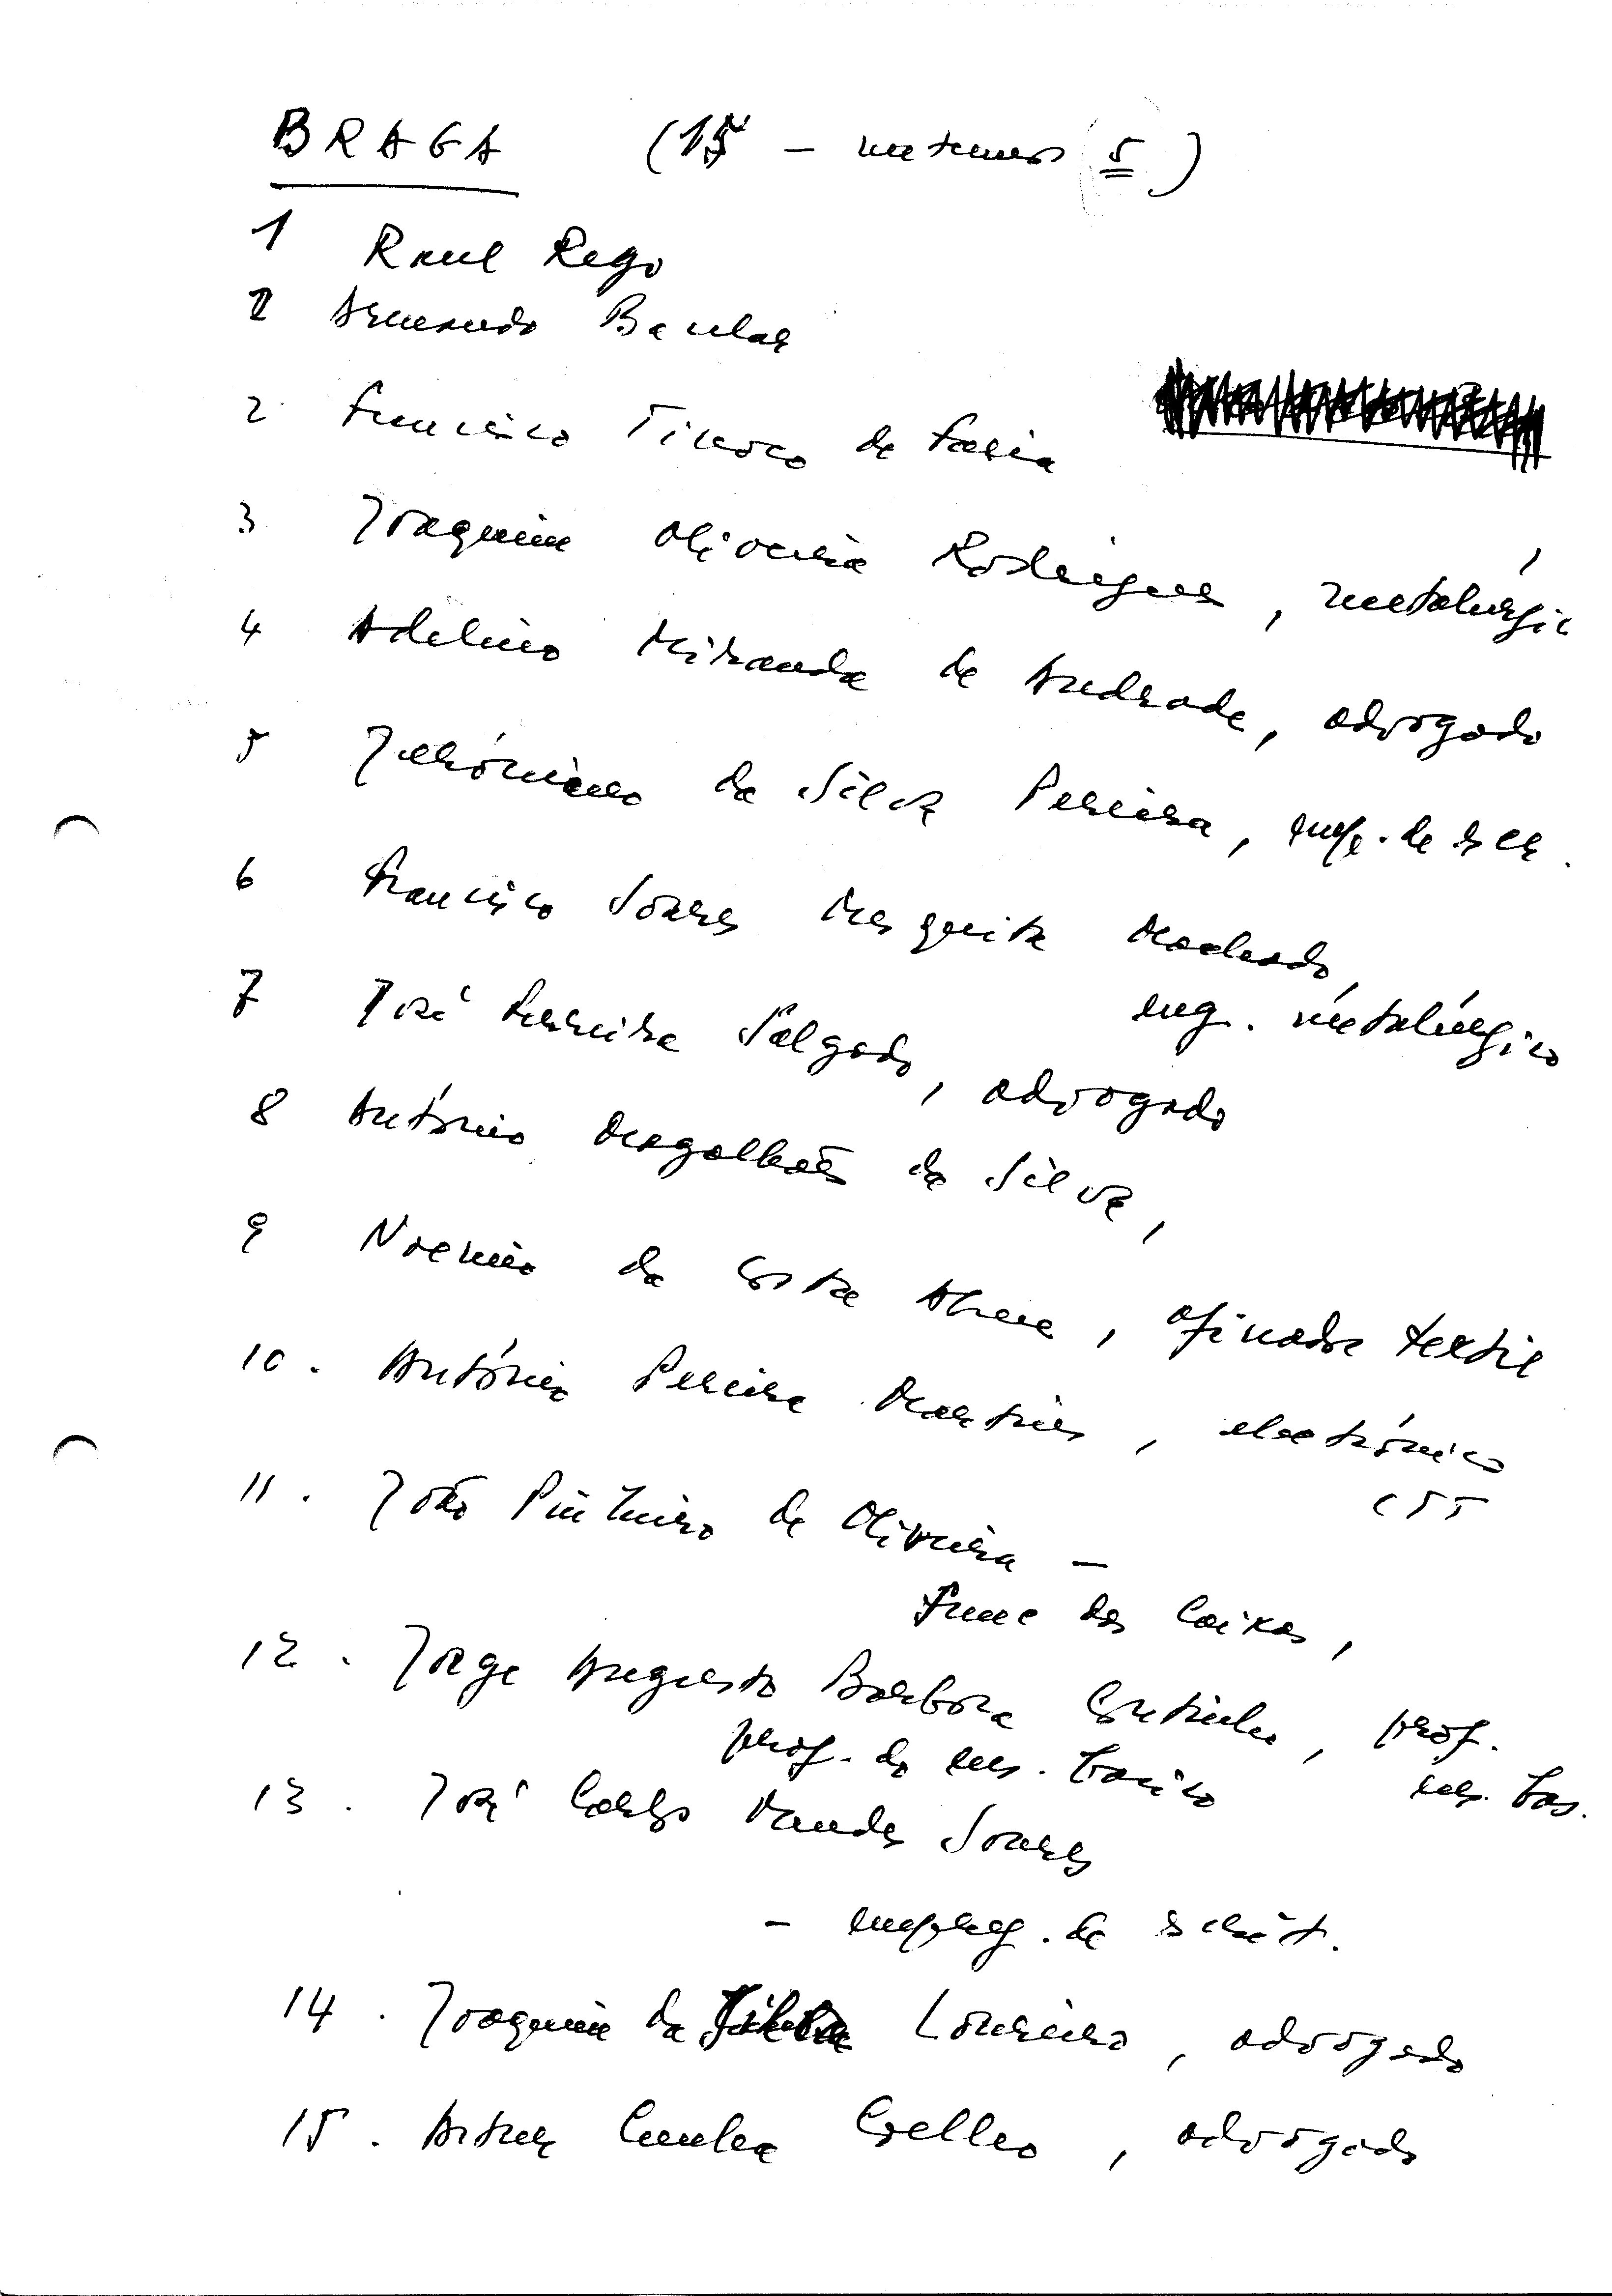 BRAGA (15 - metemos 5)
1 Raul Rego
2 Armando Bacelar
2. Francisco Tinoco de Faria
3 Joaquim Oliveira Rodrigues, metalúrgic
4 Adelino Miranda de Andrade, advogado
5 Jerónimo da Silva Pereira, emp. de esc.
6 Francisco Soares Mesquita Machado,
eng. metalúrgico
7 José Ferreira Salgado, advogado
8 António Magalhães da Silva,
9 Noemio da Costa Abreu, afinador textil
10. António Pereira Martins, electrónico
CTT
11. João Pinheiro de Oliveira -
Func das Caixas,
12. Jorge Augusto Barbosa Coutinho, prof.
ens. bas.
prof. do ens. basico
13. José Carlos Mendes Soares
- empreg. de escrit.
14. Joaquim da Silva Loureiro, advogado
15. Artur Cunha Coelho, advogado